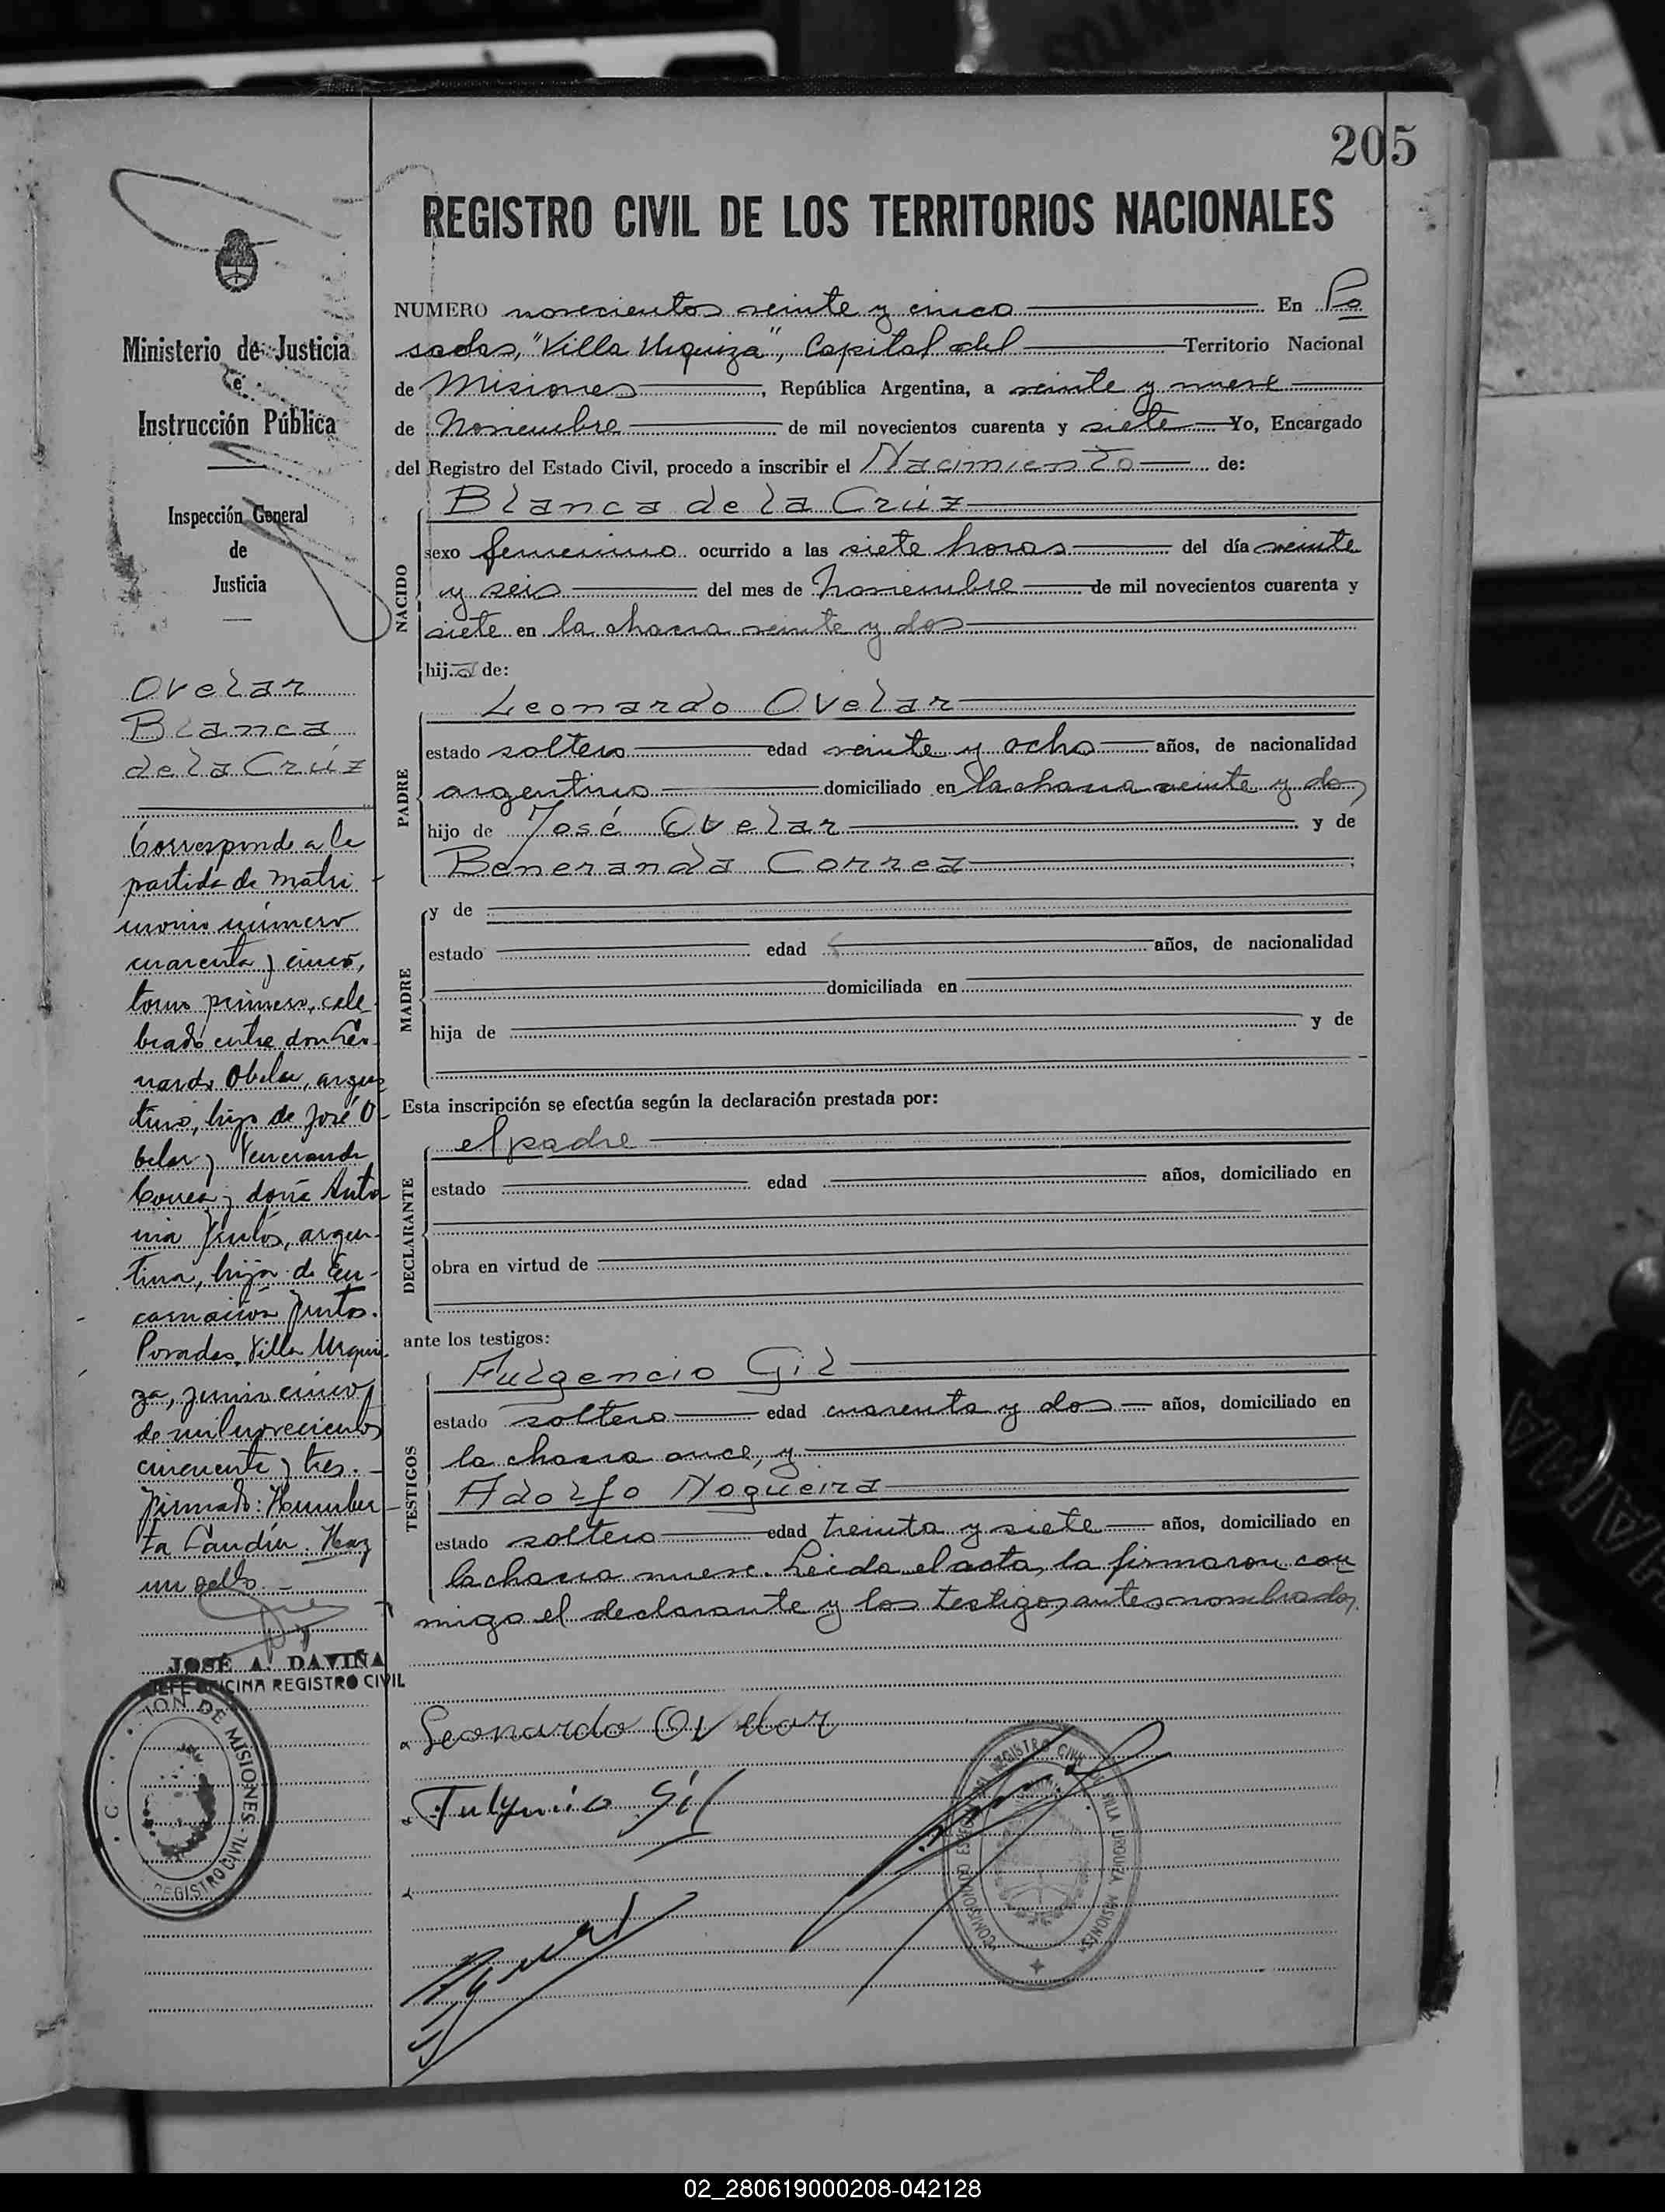 205
REGISTRO CIVIL DE LOS TERRITORIOS NACIONALES
Ministerio de Justicia
e
Instrucción Pública
Inspección General
de
Justicia
Ovelar
Blanca
de la Crúz
Corresponde a la
partida de matri
monio número
cuarenta y cinco,
tomo primero, cele
brado entre don Leo
nardo Obelar, argen
tino, hijo de José O-
belar y Veneranda
Correa y doña Anto
nia , argen-
tina, hija de En-
carnación
Posadas, Villa Urqui
za, junio cinco
de mil novecientos
cincuenta y tres.-
Firmado: Humber
ta Candín. Hay
un sello.-
JOSÉ A. DAVIÑA
JEFE OFICINA REGISTRO CIVIL
ION DE MISIONES
REGISTRO CIVIL
NUMERO novecientos veinte y cinco En Po
sadas, "Villa Urquiza", Capital del Territorio Nacional
de Misiones, República Argentina, a veinte y nueve
de Noviembre de mil novecientos cuarenta y siete Yo, Encargado
del Registro del Estado Civil, procedo a inscribir el Nacimiento de:
NACIDO
Blanca de la Crúz
sexo femenino ocurrido a las siete horas del día veinte
y seis del mes de Noviembre de mil novecientos cuarenta y
siete en la chacra veinte y dos
hija de:
PADRE
Leonardo Ovelar
estado soltero edad veinte y ocho años, de nacionalidad
argentino domiciliado en la chacra veinte y dos,
hijo de José Ovelar y de
Beneranda Correa
MADRE
y de
estado edad años, de nacionalidad
domiciliada en
hija de y de
Esta inscripción se efectúa según la declaración prestada por:
DECLARANTE
el padre
estado edad años, domiciliado en
obra en virtud de
ante los testigos:
TESTIGOS
Fulgencio Gil
estado soltero edad cuarenta y dos años, domiciliado en
la chacra once, y
Adolfo Nogueira
estado soltero edad treinta y siete años, domiciliado en
la chacra nueve. Leida el acta, la firmaron con
migo el declarante y los testigos antes nombrados.
Leonardo Ovelar
Fulgencio Gil
REGISTRO CIVIL VILLA URQUIZA MISIONES
02_280619000208-042128